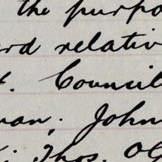 the purpo
rd relativ
t. Council
man, John
Thos. Oc